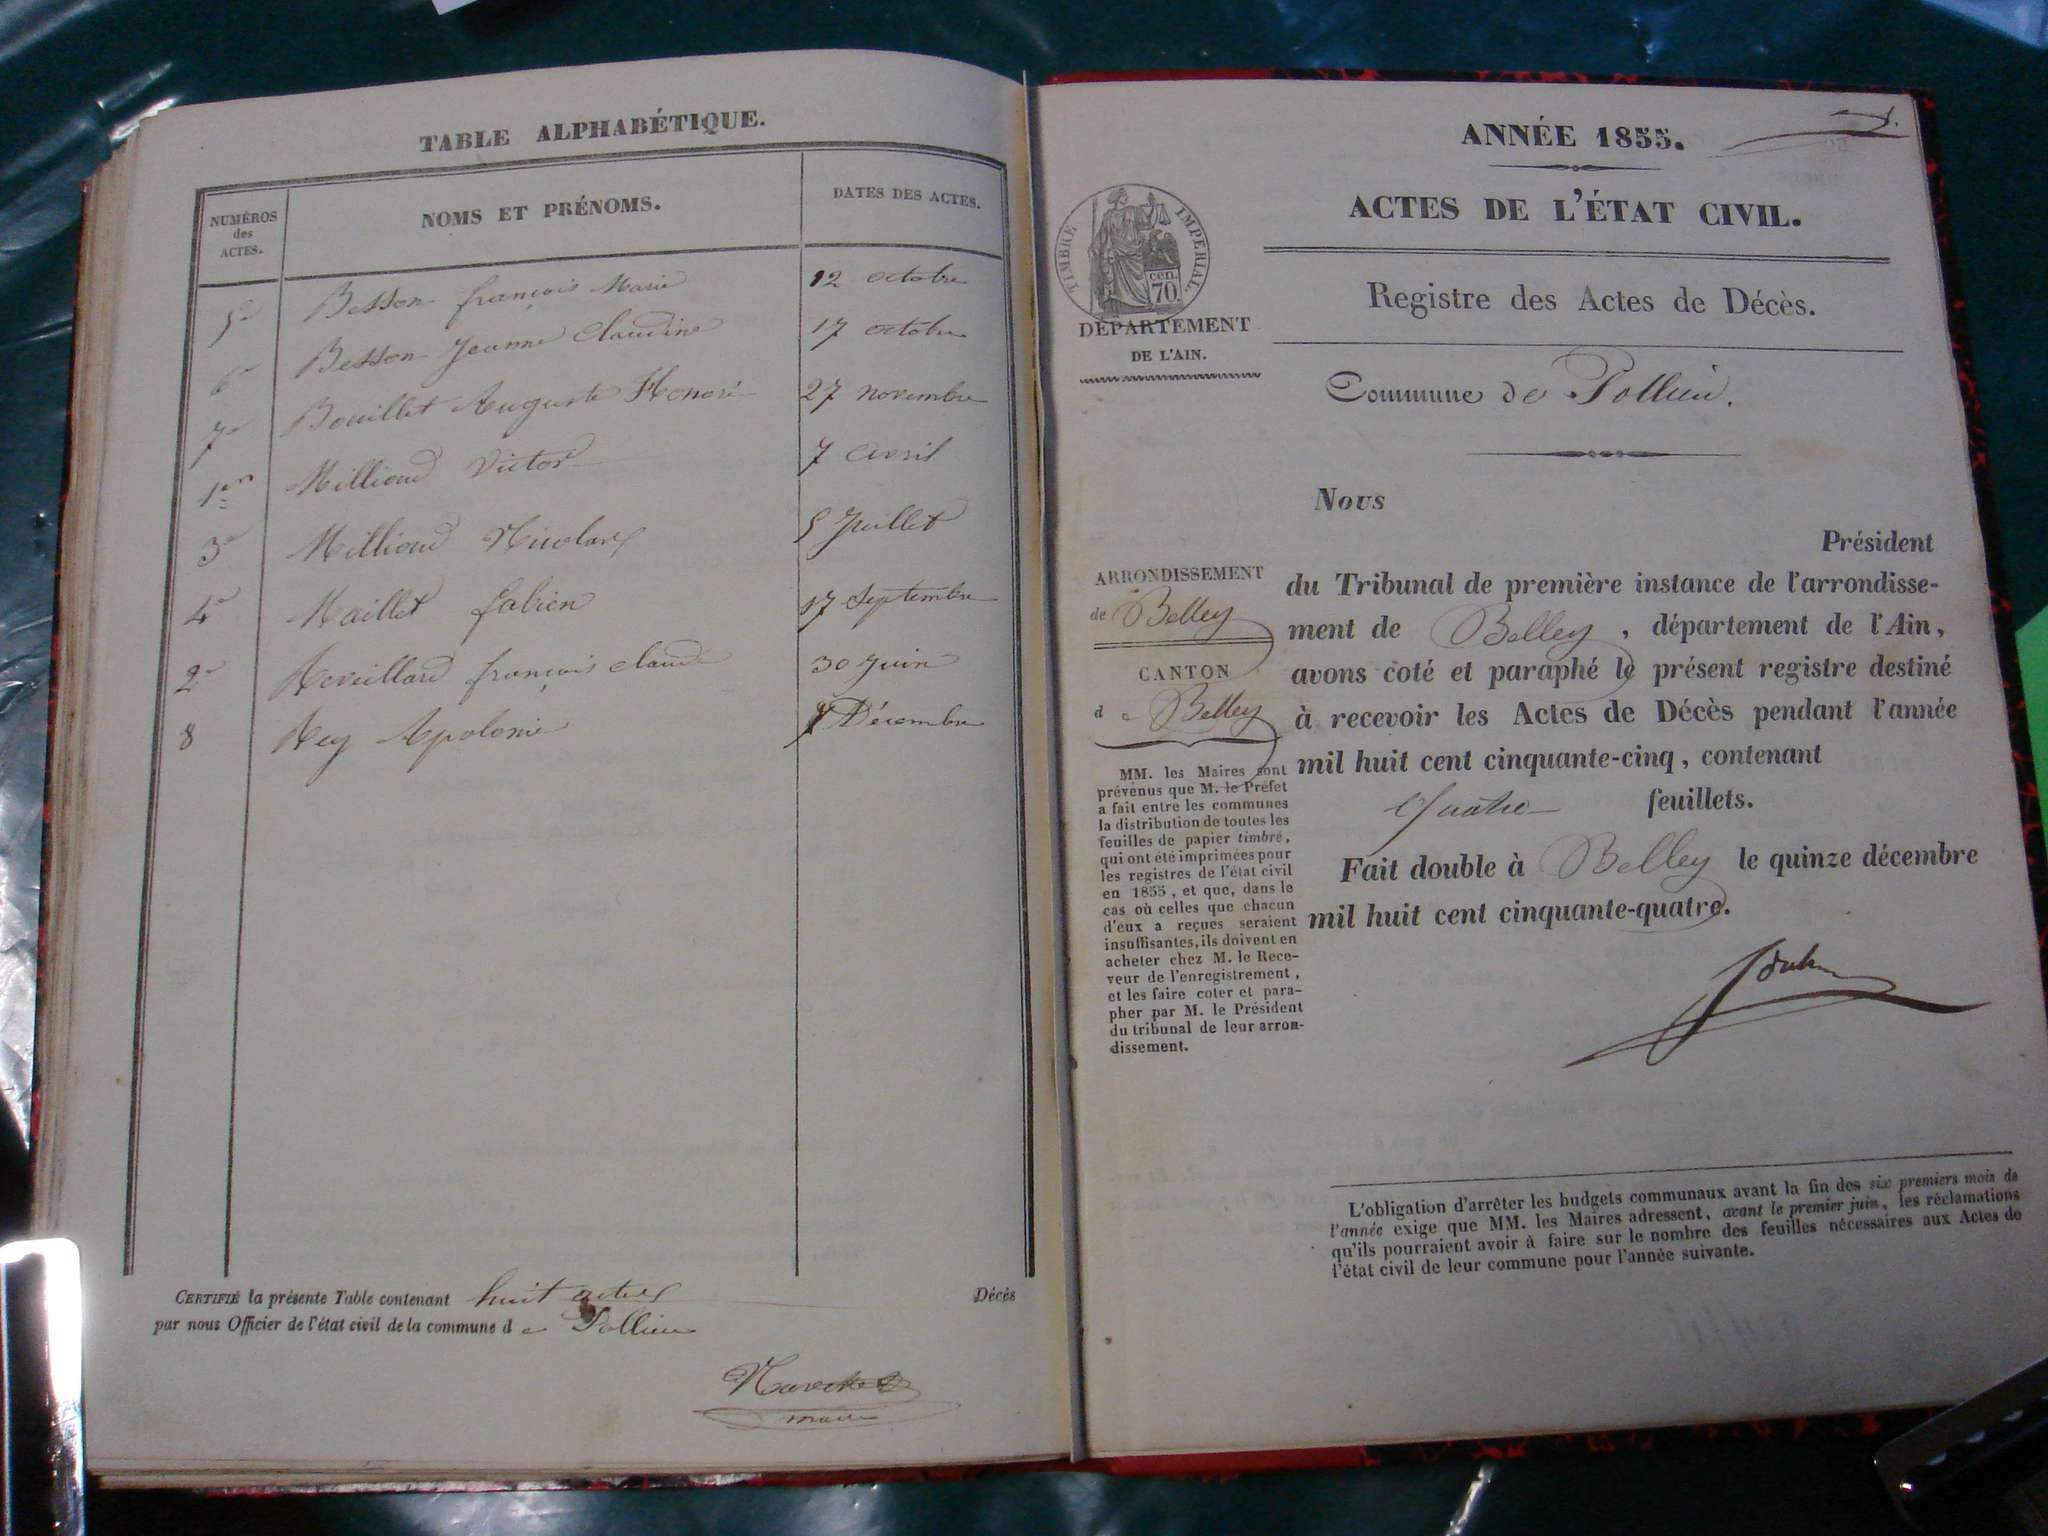 TABLE ALPHABÉTIQUE.
NUMÉROS
des
ACTES.
NOMS ET PRÉNOMS.
DATES DES ACTES.
5e Besson françois Marie 12 octobre
6e Besson Jeanne Claudine 17 octobre
7e Bouillet Auguste Honoré 27 novembre
1er Milliond Victor 7 avril
3e Milliond Nicolas 5 Juillet
4e Maillet fabien 17 Septembre
2e Reveillard françois claude 30 Juin
8 Rey Apolonie Décembre
CERTIFIÉ la présente Table contenant huit actes Décès
par nous Officier de l'état civil de la commune de Pollieu
maire
ANNÉE 1855.
ACTES DE L'ÉTAT CIVIL.
TIMBRE IMPÉRIAL.
70. cen.
Registre des Actes de Décès.
DÉPARTEMENT
DE L'AIN.
Commune de Pollieu.
Nous
Président
du Tribunal de première instance de l'arrondisse-
ment de Belley, département de l'Ain,
avons coté et paraphé le présent registre destiné
à recevoir les Actes de Décès pendant l'année
mil huit cent cinquante-cinq, contenant
Quatre feuillets.
Fait double à Belley le quinze décembre
mil huit cent cinquante-quatre.
ARRONDISSEMENT
de Belley
CANTON
de Belley
MM. les Maires sont
prévenus que M. le Préfet
a fait entre les communes
la distribution de toutes les
feuilles de papier timbré,
qui ont été imprimées pour
les registres de l'état civil
en 1855, et que, dans le
cas où celles que chacun
d'eux a reçues seraient
insuffisantes, ils doivent en
acheter chez M. le Rece-
veur de l'enregistrement,
et les faire coter et para-
pher par M. le Président
du tribunal de leur arron-
dissement.
L'obligation d'arrêter les budgets communaux avant la fin des six premiers mois de
l'année exige que MM. les Maires adressent, avant le premier juin, les réclamations
qu'ils pourraient avoir à faire sur le nombre des feuilles nécessaires aux Actes de
l'état civil de leur commune pour l'année suivante.